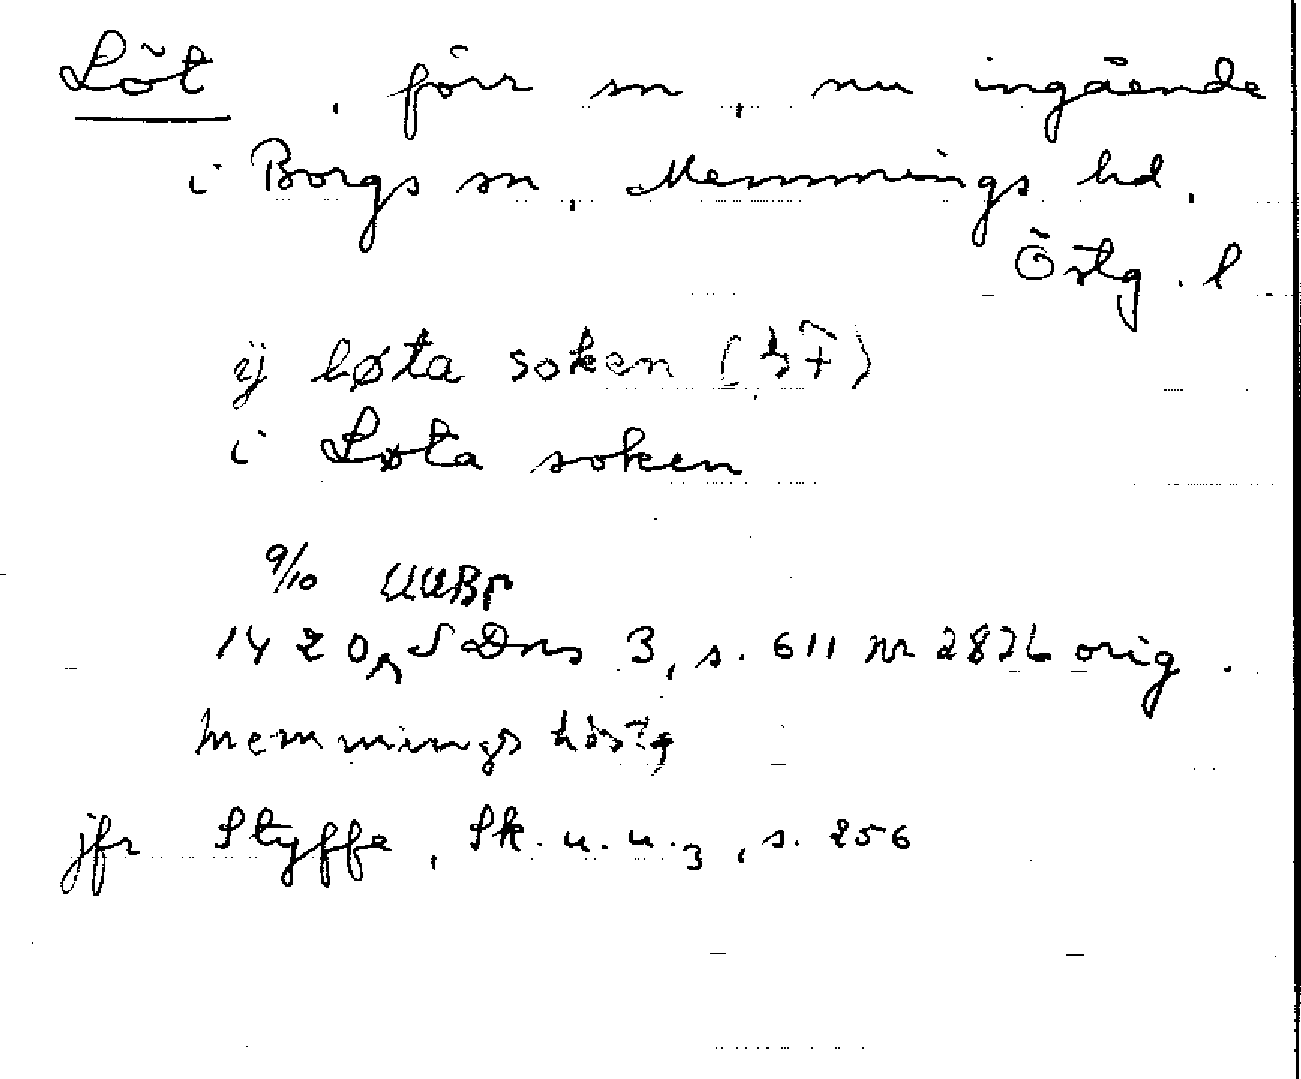 Löt, förr sn, nu ingående
i Borgs sn, Memmings hd,
Östg. l
ij løta soken
i Løta soken
9/10 UUBr
1420, SDns 3, s. 611 nr 2826 orig.
memmings
jfr Styffe, Sk. u. u. 3, s. 256